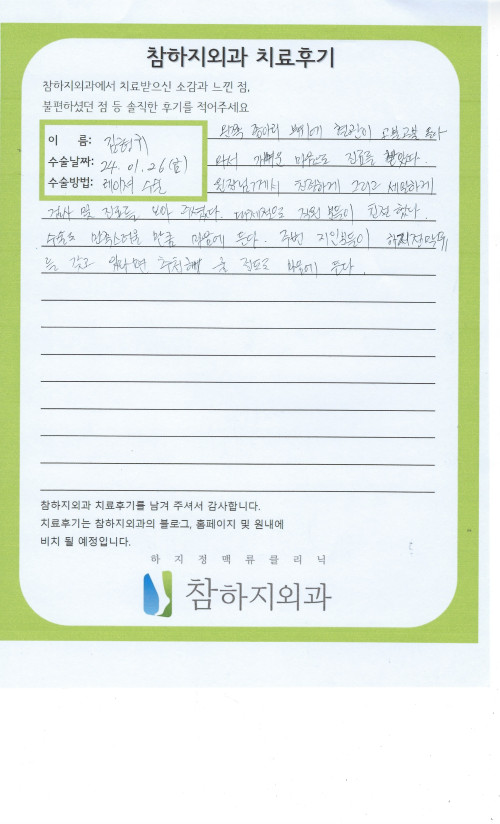 참하지외과 치료후기
참하지외과에서 치료받으신 소감과 느낀 점,
불편하셨던 점 등 솔직한 후기를 적어주세요
이 름:
수술날짜: 24. 01. 26 (금)
수술방법: 레이저 수술
왼쪽 종아리 뼈에 혈관이 고불고불 올라
와서 가벼운 마음으로 진료를 받았다.
원장님께서 친절하게 그리고 세밀하게
검사 및 진료를 보아 주셨다. 대체적으로 직원 분들이 친절했다.
수술도 만족스러울 만큼 마음에 든다. 주변 지인분들이 하지정맥류
를 갖고 있다면 추천해 줄 정도로 마음에 든다.
참하지외과 치료후기를 남겨 주셔서 감사합니다.
치료후기는 참하지외과의 블로그, 홈페이지 및 원내에
비치 될 예정입니다.
하지정맥류클리닉
참하지외과